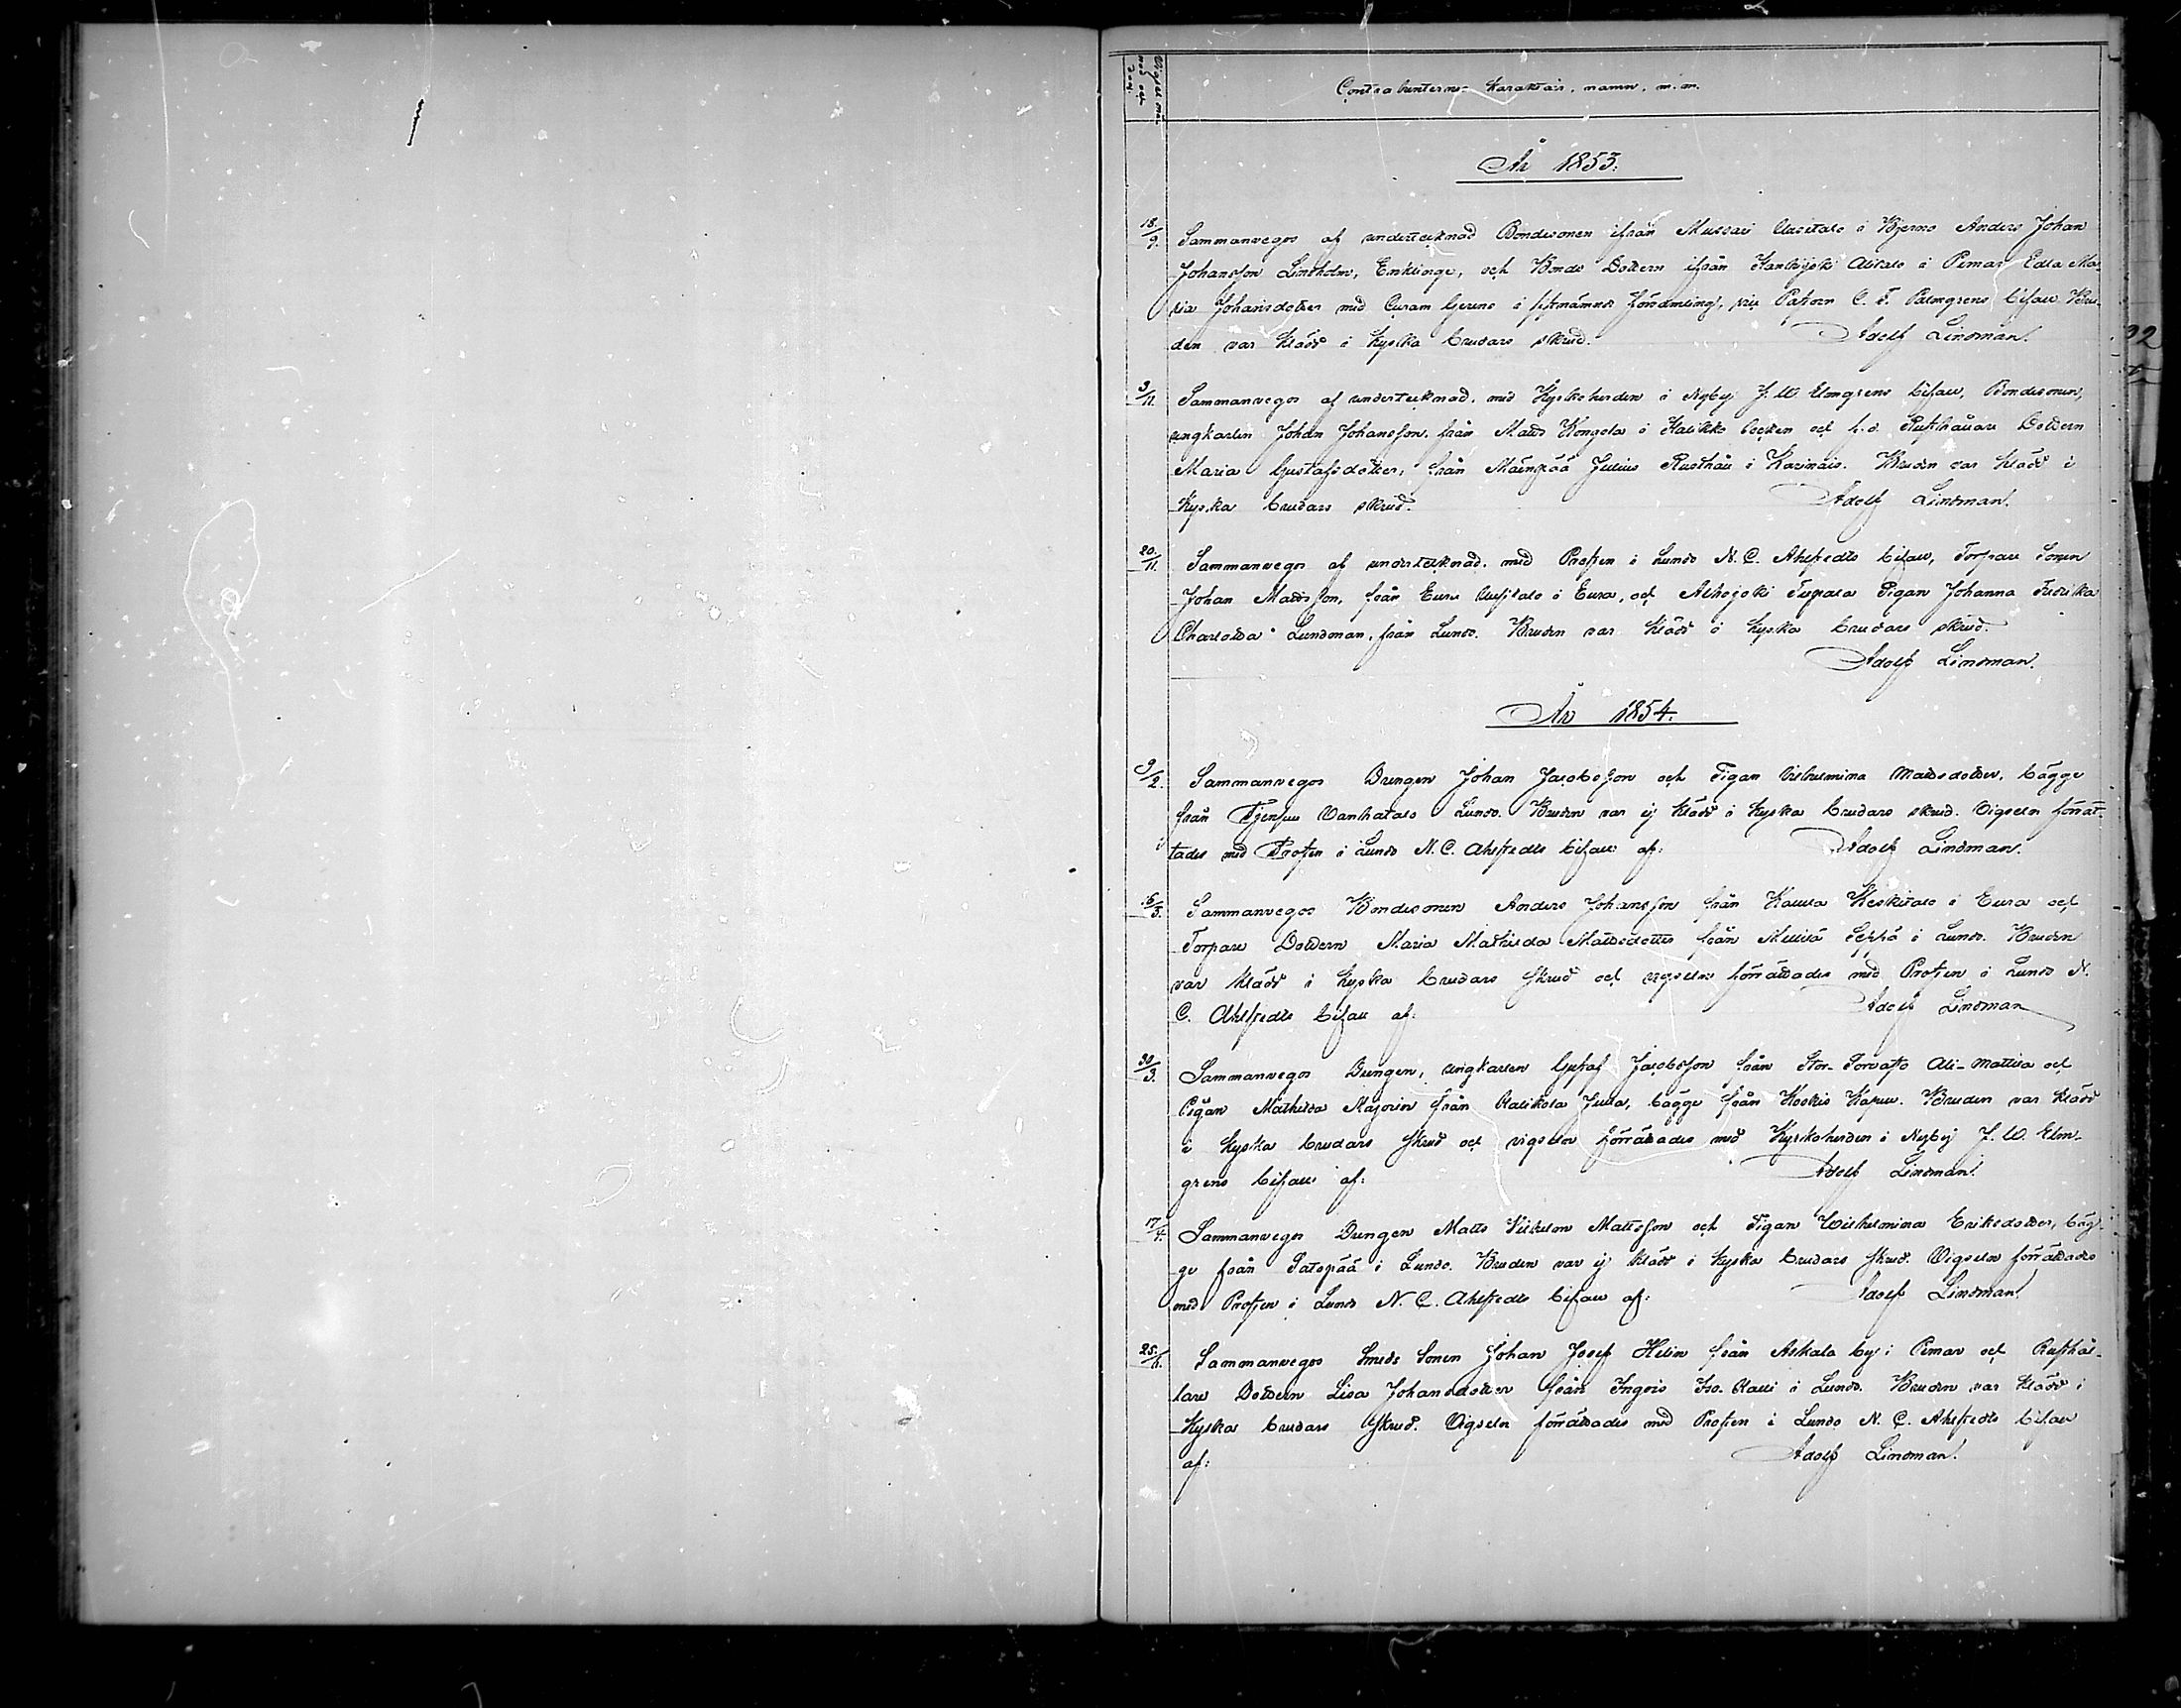 Vigsel må-
nad och
dag.
Contrahenternes karaktär, namn, m. m.
År 1853.
18/9. Sammanvegos af undertecknad Bondesonen ifrån Mussari Uusitalo i Bjerno Anders Johan
Johansson Lindholm, Enklinge, och Bonde Dottern ifrån Kankijoki Alitalo i Pemar Edla Ma-
ria Johansdotter med Curam gerens i sistnämnde församling, vice Pastorn C. F. Palmgrens bifall. Bru-
den var klädd i kyska brudars skrud. Adolf Lindman.
3/11. Sammanvegos af undertecknad, med Kyrkoherden i Nyby J. W. Elmgrens bifall, Bondesonen,
ungkarlen Johan Johansson, från Matts Kongola i Halikko socken och f. d. Rusthållare Dottern
Maria Gustafsdotter, från Mäenpää Julius Rusthåll i Karinais. Bruden var klädd i
kyska brudars skrud. Adolf Lindman.
20/11. Sammanvegos af undertecknad, med Prosten i Lundo N. C. Ahlstedts bifall, Torpare Sonen
Johan Mattsson, från Eura Uusitalo i Eura, och Pigan Johanna Fredrika
Charlotta Lundman, från Lundo. Bruden var klädd i kyska brudars skrud.
Adolf Lindman.
År 1854.
9/2. Sammanvegos Drengen Johan Jacobsson och Pigan Vilhelmina Mattsdotter, bägge
från Vanhatalo i Lundo. Bruden var ej klädd i kyska brudars skrud. Vigseln förrät-
tades med Prosten i Lundo N. C. Ahlstedts bifall af: Adolf Lindman.
16/3. Sammanvegos Bondesonen Anders Johansson från Kauva Keskitalo i Eura och
Torpare Dottern Maria Mathilda Mattsdotter från Mellilä Seppä i Lundo. Bruden
var klädd i kyska brudars skrud och vigseln förrättades med Prosten i Lundo N.
C. Ahlstedts bifall af: Adolf Lindman
30/3. Sammanvegos Drengen, ungkarlen Gustaf Jacobsson från Stor-Sorvasto Ali-Mattila och
Pigan Mathilda Majorin från Raukola Juva, bägge från Koskis Kapell. Bruden var klädd
i kyska brudars skrud och vigseln förrättades med Kyrkoherden i Nyby J. W. Elm-
grens bifall af: Adolf Lindman.
17/4. Sammanvegos Drengen Matts Vilhelm Mattsson och Pigan Wilhelmina Eriksdotter, bäg-
ge från Satopää i Lundo. Bruden var ej klädd i kyska brudars skrud. Vigseln förrättades
med Prosten i Lundo N. C. Ahlstedts bifall af: Adolf Lindman
25/11. Sammanvegos Smeds Sonen Johan Josef Helin från Askala by i Pemar och Rusthål-
lare Dottern Lisa Johansdotter från Ingois Iso-Ralli i Lundo. Bruden var klädd i
kyska brudars skrud. Vigseln förrättades med Prosten i Lundo N. C. Ahlstedts bifall
af: Adolf Lindman.
32